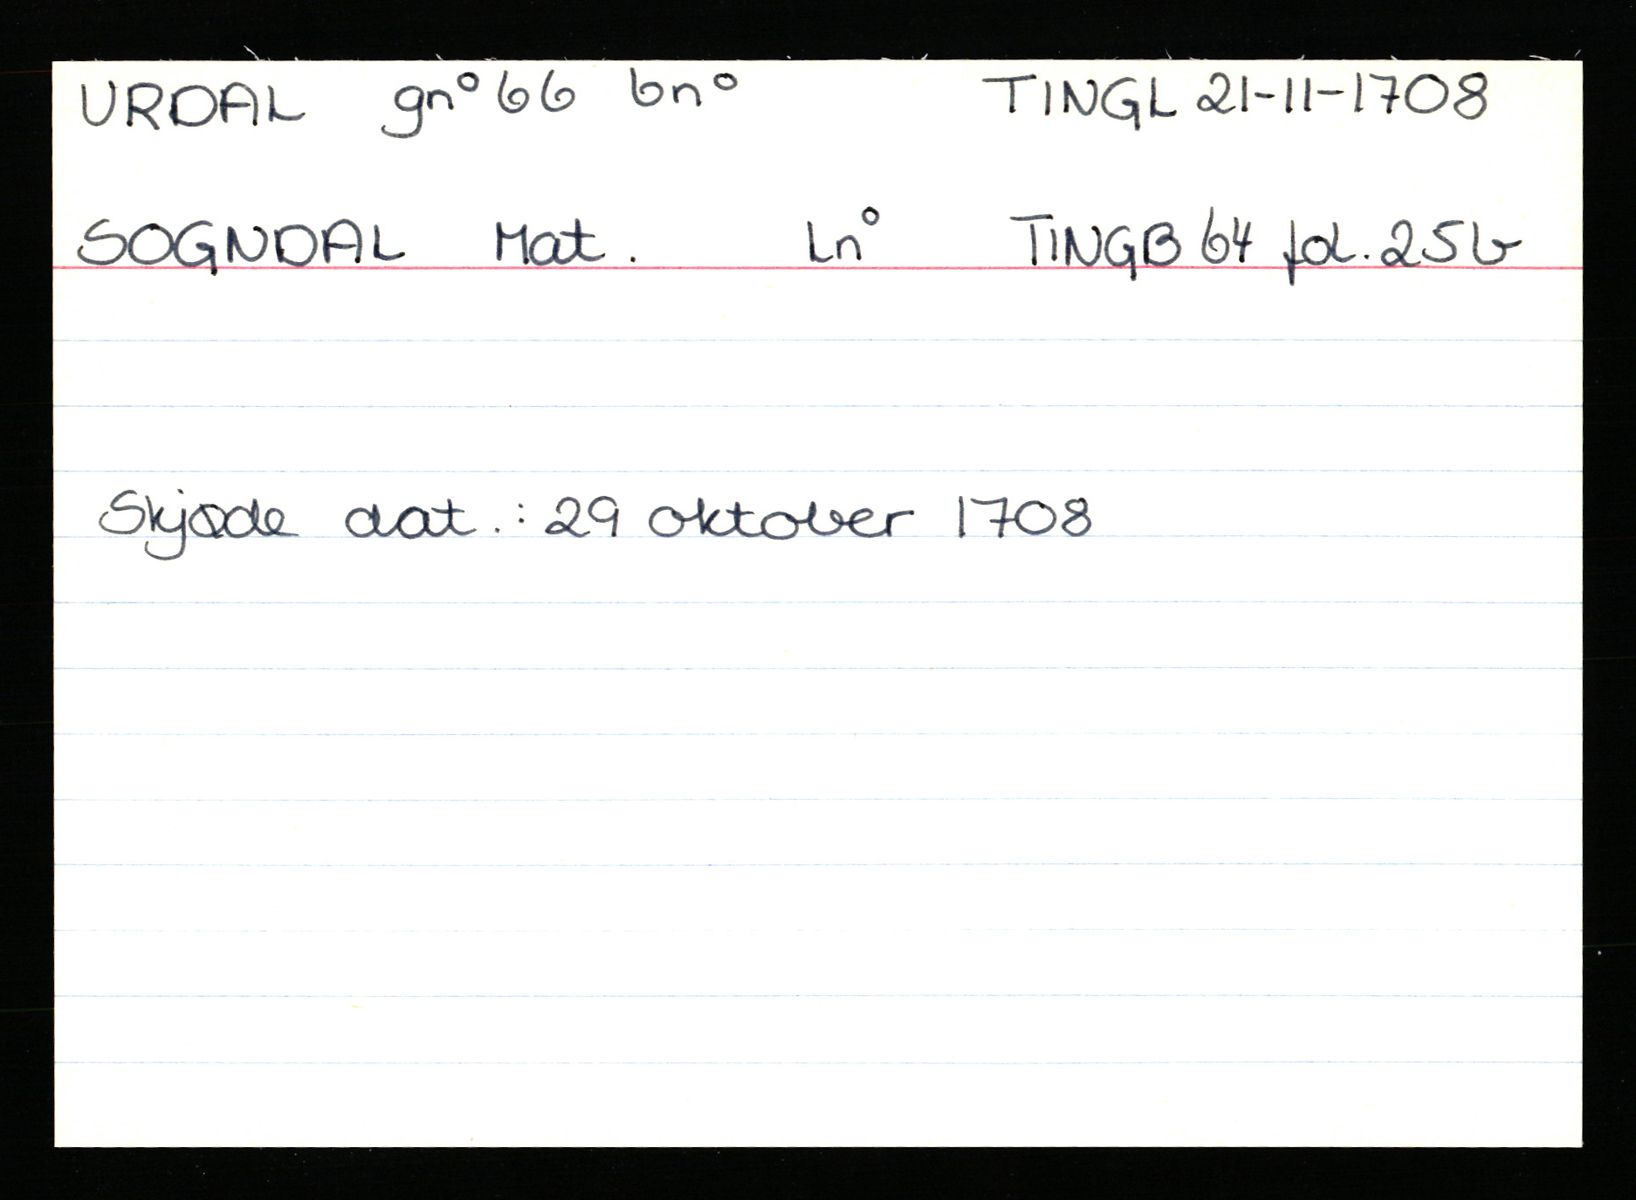 URDAL gn° 66 bn° TINGL 21-11-1708
SOGNDAL Mat. Ln° TINGB 64 fol. 25b
Skjøde dat.: 29 oktober 1708